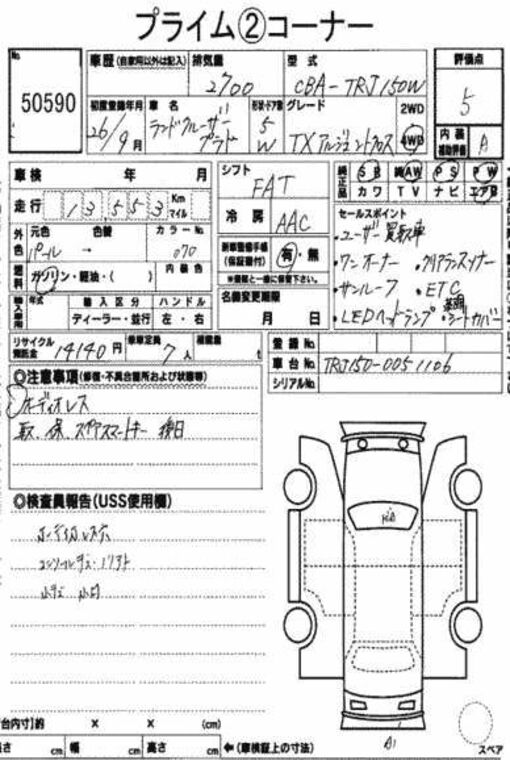 プライム②コーナー
No.
50590
車歴(自家用以外は記入)
排気量
2700
型式
CBA-TRJ150W
評価点
5
初度登録年月
26/9月
車名
ランドクルーザー
プラド
形状・ドア数
5
W
グレード
TX アルジェントクロス
2WD
4WD
内装
補助評価
A
車検 年 月
走行 13,553 Km
マイル
シフト
FAT
冷房
AAC
純正品
SR 純AW PS PW
カワ TV ナビ エアB
外色
元色
パール
色替
→
カラーNo.
070
燃料
ガソリン・軽油・( )
内装色
新車整備手帳
(保証書付)
有・無
※書類と一緒に保管下さい。
セールスポイント
・ユーザー買取車
・ワンオーナー ・クリアランスソナー
・サンルーフ ・ETC
・LEDヘッドランプ ・シートカバー
年式
輸入区分
ディーラー・並行
ハンドル
左・右
名義変更期限
月 日
リサイクル
預託金
14140円
乗車定員
7人
積載量
t
登録No.
車台No. TRJ150-0051106
シリアルNo.
◎注意事項(修復・不具合箇所および状態等)
オーディオレス
取、保、スペアスマートキー 後日
◎検査員報告(USS使用欄)
オーディオレス
小キズ 小凹
A1
スペア
【荷台内寸】約 × × (cm)
長さ cm 幅 cm 高さ cm
←(車検証上の寸法)